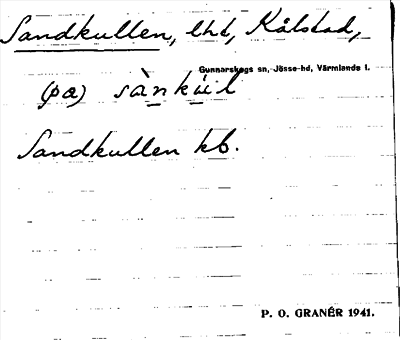 Sandkullen, lht, Kålstad,
Gunnarskogs sn, Jösse-hd, Värmlands l.
(pa) sànkúl
Sandkullen kb.
P. O. GRANÉR 1941.